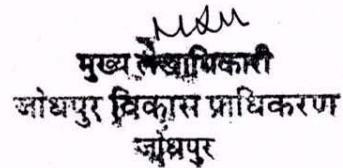 मुख्य लेखाधिकारी
जोधपुर विकास प्राधिकरण
जोधपुर